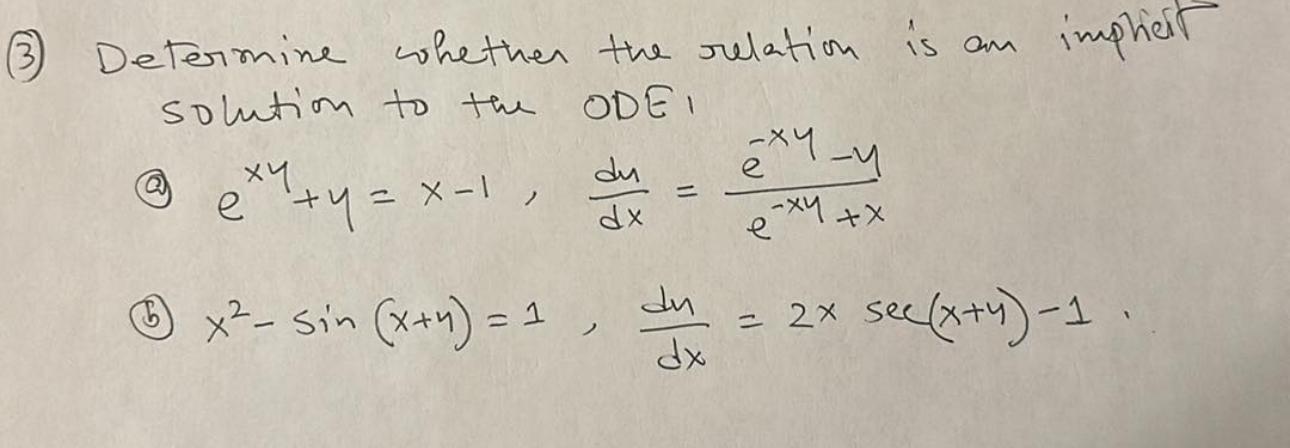 ③ Determine whether the relation is an implicit
solution to the ODE.
ⓐ e^{xy} + y = x - 1 , dy/dx = (e^{-xy} - y)/(e^{-xy} + x)
ⓑ x² - sin (x+y) = 1 , dy/dx = 2x sec(x+y) - 1 .